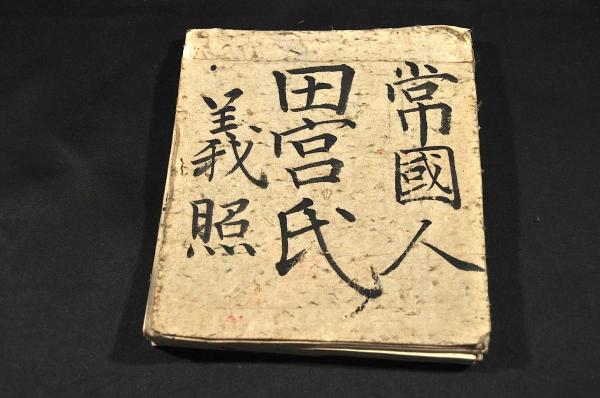 常國人
田宮氏
義照